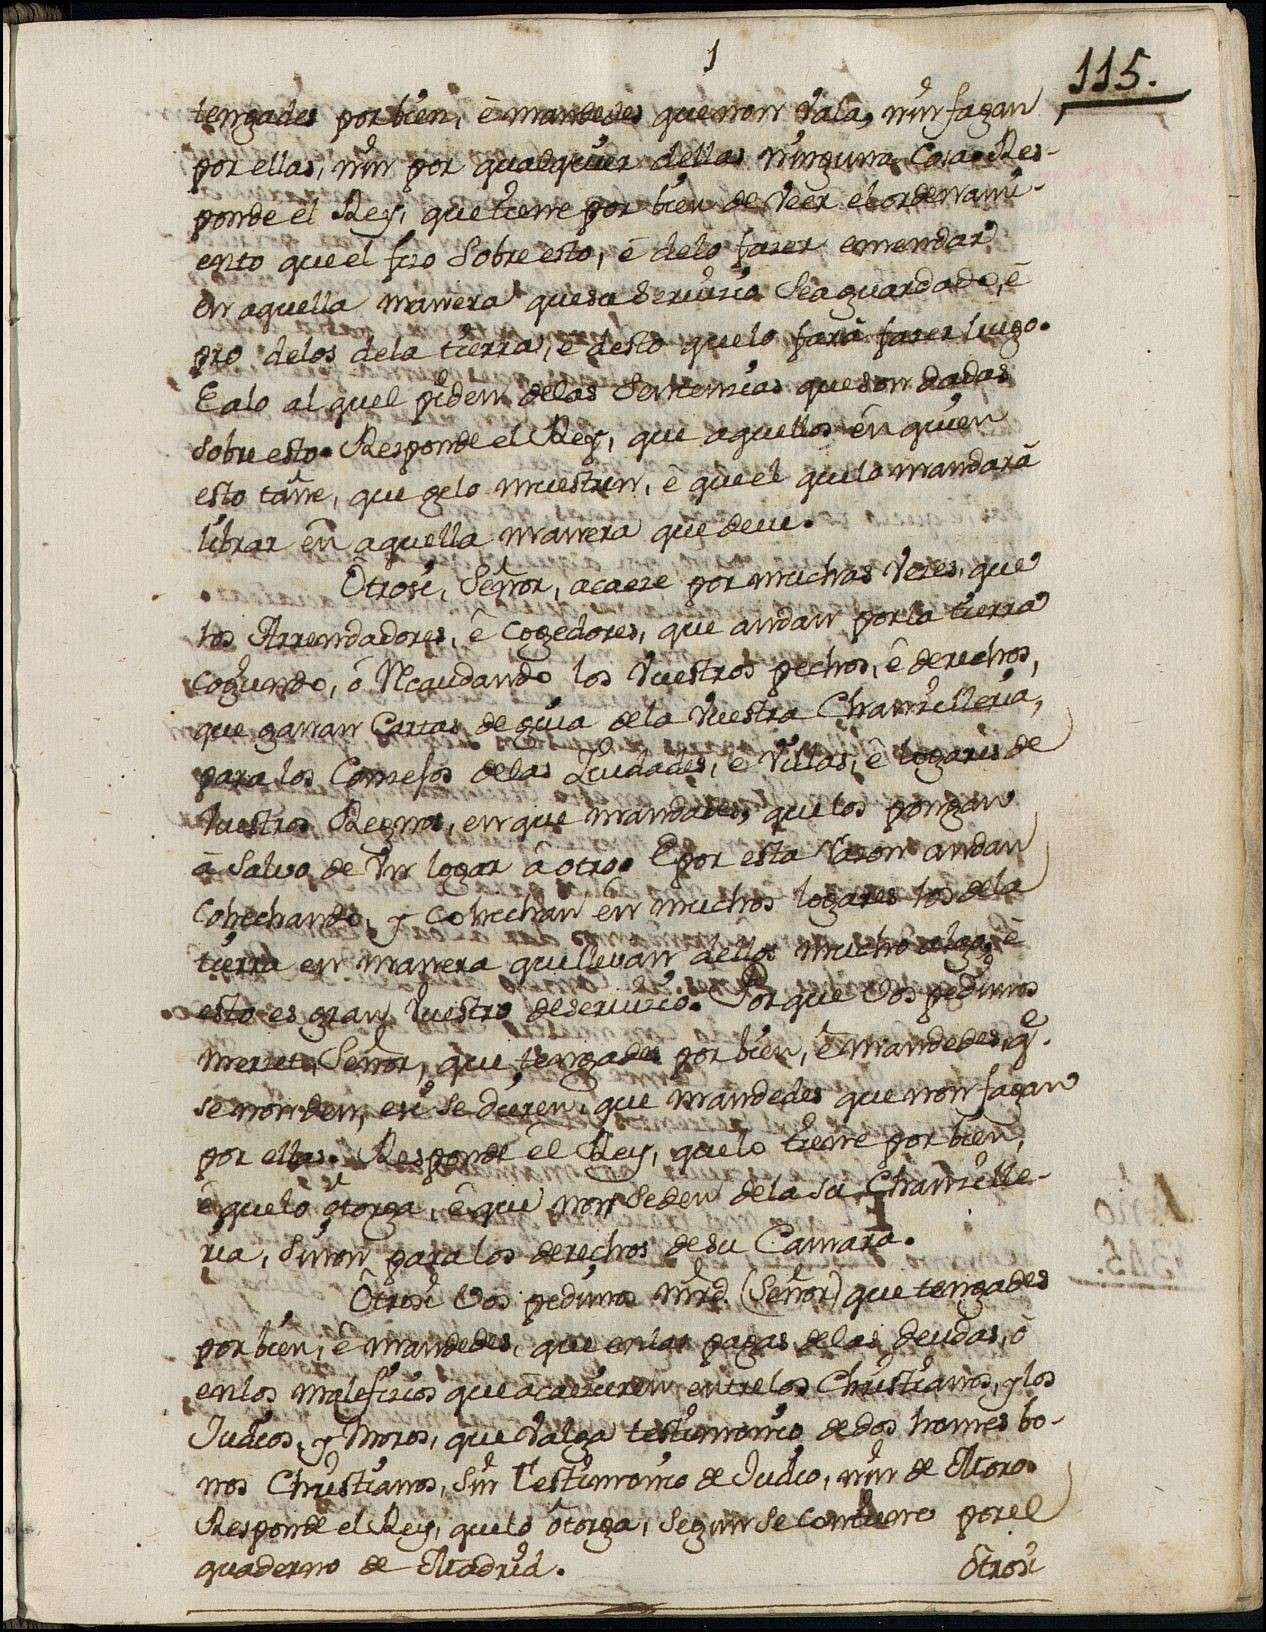 1
115.
tengades por bien, è mandedes que non vala, nin fagan
por ellas, nin por qualquier dellas ninguna Cosa. Res-
ponde el Rey, que tiene por bien de veer el ordenami-
ento que el fizo Sobre esto, è delo fazer emendar
en aquella manera que su Servizio Sea guardado, è
pro delos dela tierra, è desto quelo fará fazer luego.
E alo al quel piden delas Sentenzias que son dadas
sobre esto. Responde el Rey, que aquellos ên quien
esto tañe, que gelo muestren, è que el quelo mandará
librar ên aquella manera que deve.
Ôtrosi, Señor, acaeze por muchas Vezes, que
los Arrendadores, ê Cogedores, que andan por la tierra
Cogiendo, ô Recaudando los Vuestros pechos, ê derechos,
que ganan Cartas de guia dela Vuestra Chanzilleria,
para los Consejos delas Ziudades, è Villas, ê logares de
Vuestros Regnos, en que mandades, quelos pongan
â Salvo de Vn logar â otro. E por esta razon andan
Cohechando, y Cohechan en muchos logares los dela
tierra en manera que llevan dellos mucho algo, è
esto es gran Vuestro deservizio. Porque Vos pedimos
merzet, Señor, que tengades por bien, è mandedes, q.e
se non den, è si se dieren, que mandedes que non fagan
por ellas. Responde êl Rey, quelo tiene por bien,
ê quelo ôtorga, ê que non se den dela su Chanzille-
ria, Sinon para los derechos de su Camara.
Ôtrosi Vos pedimos mrzd. (Señor) que tengades
por bien, è mandedes, que enlas pagas delas deudas, ò
enlos malefizios que âcaezieren entrelos Christianos, y los
Judios, y moros, que Valga testimonio de dos homes bo-
nos Christianos, Sin Testimonio de Judio, nin de Moro.
Responde el Rey, quelo ôtorga, Segun se contiene por el
quaderno de Madrid.
Ôtrosi